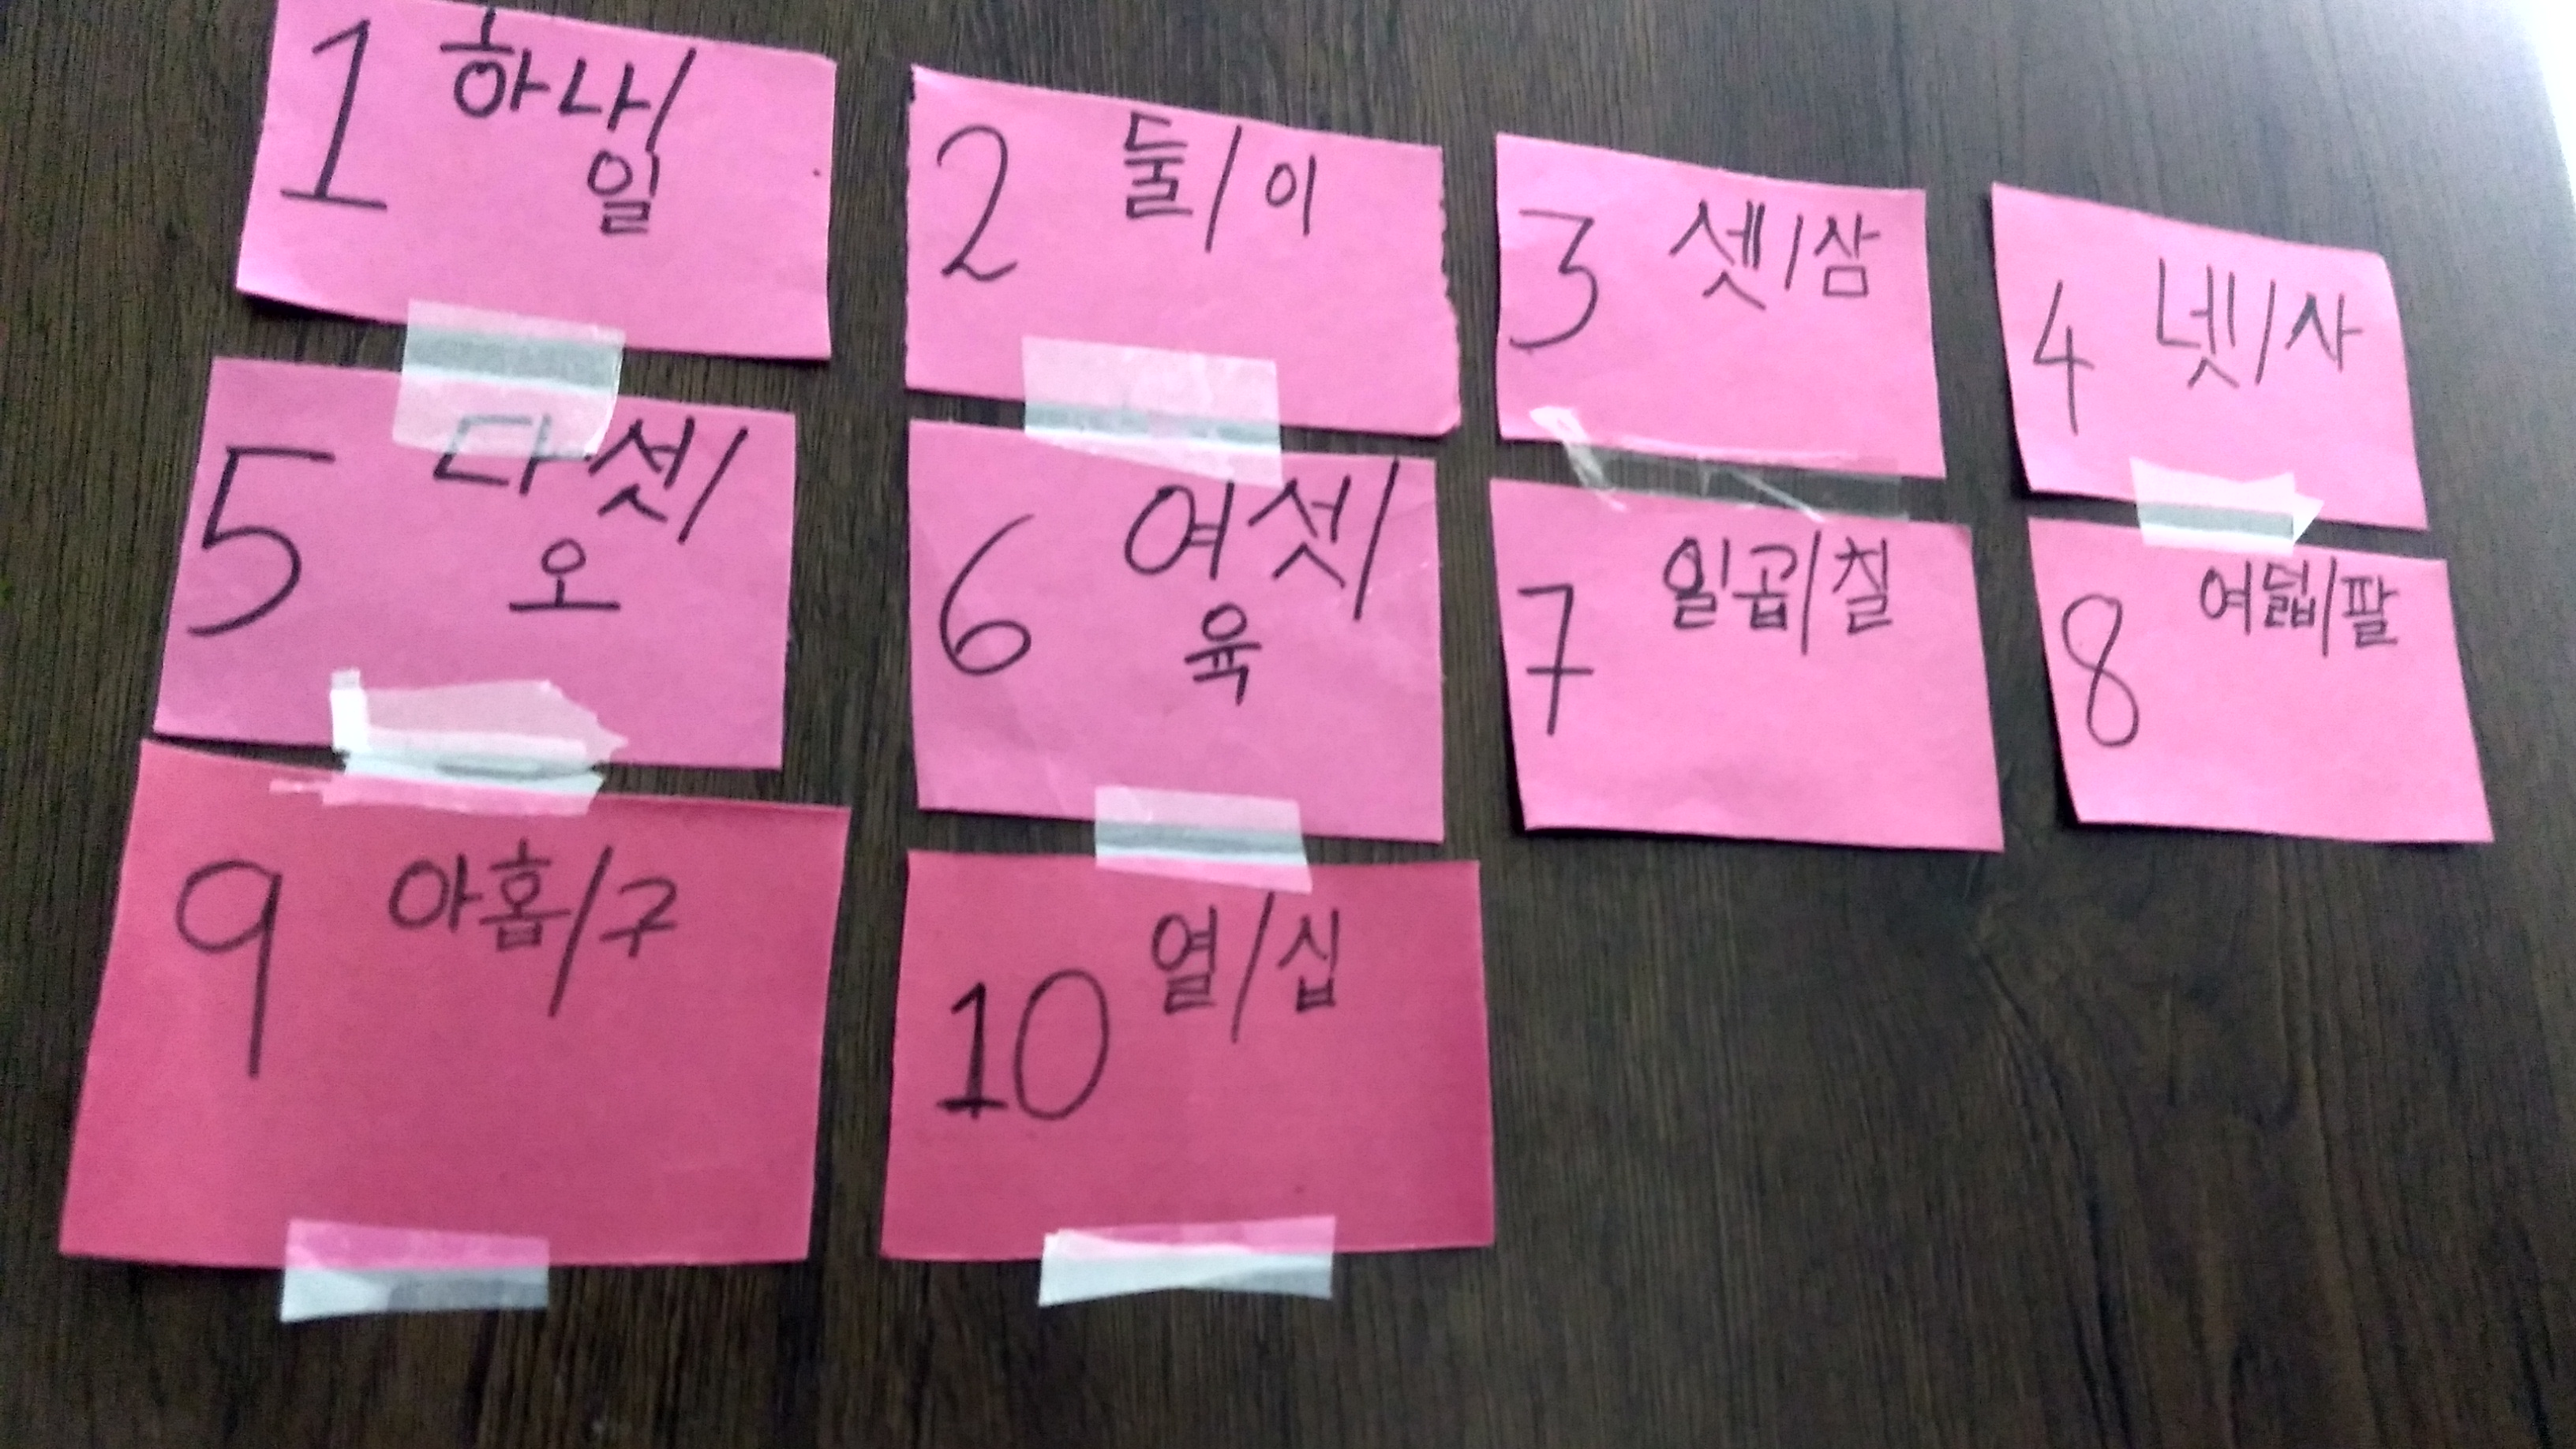 1 하나/
일
2 둘/이
3 셋/삼
4 넷/사
5 다섯/
오
6 여섯/
육
7 일곱/칠
8 여덟/팔
9 아홉/구
10 열/십